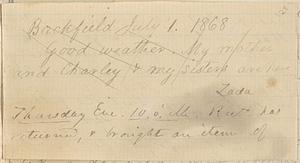 Brookfield July 1. 1868
Good weather. My mother
and Charley & my sisters are
Zada
Thursday Eve. 10, o, clk. has
returned, & brought an item of